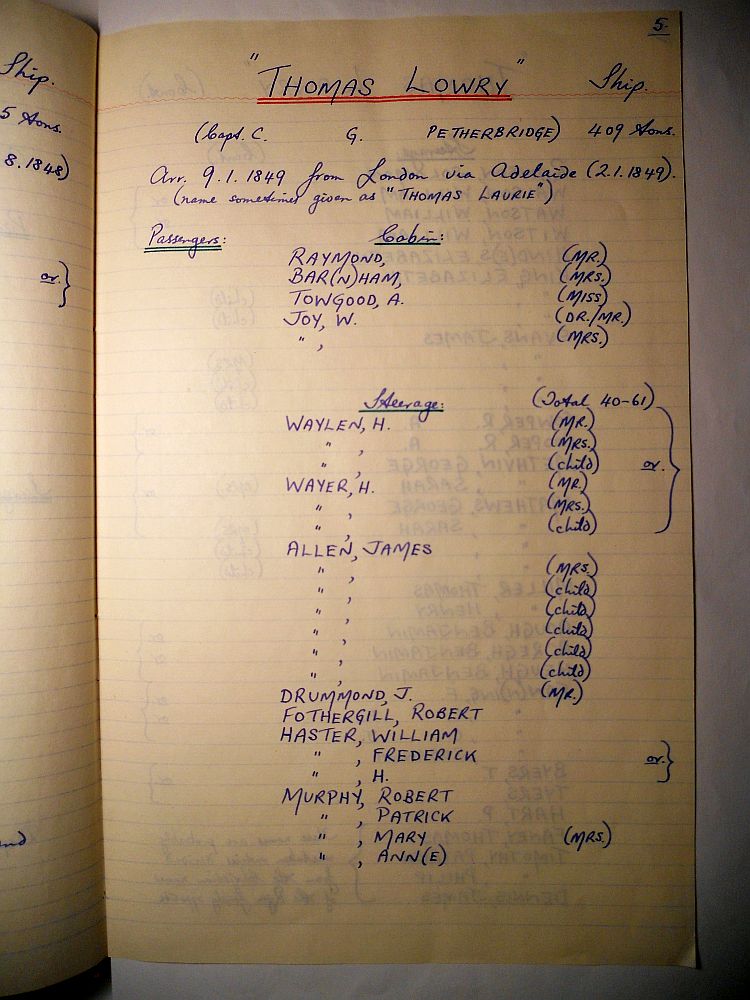 5
"THOMAS LOWRY" Ship.
(Capt. C. G. PETHERBRIDGE) 409 tons.
Arr. 9.1.1849 from London via Adelaide (2.1.1849).
(name sometimes given as "THOMAS LAURIE")
Passengers: Cabin:
RAYMOND, (MR.)
BAR(N)HAM, (MRS.)
TOWGOOD, A. (MISS)
JOY, W. (DR./MR.)
" , (MRS.)
Steerage: (Total 40-61)
WAYLEN, H. (MR.)
" , (MRS.)
" , (child) or.
WAYER, H. (MR.)
" , (MRS.)
" , (child)
ALLEN, JAMES
" , (MRS.)
" , (child)
" , (child)
" , (child)
" , (child)
" , (child)
DRUMMOND, J. (MR.)
FOTHERGILL, ROBERT
HASTER, WILLIAM
" , FREDERICK or.
" , H.
MURPHY, ROBERT
" , PATRICK
" , MARY (MRS.)
" , ANN(E)
Ship.
5 tons.
8.1848)
or.